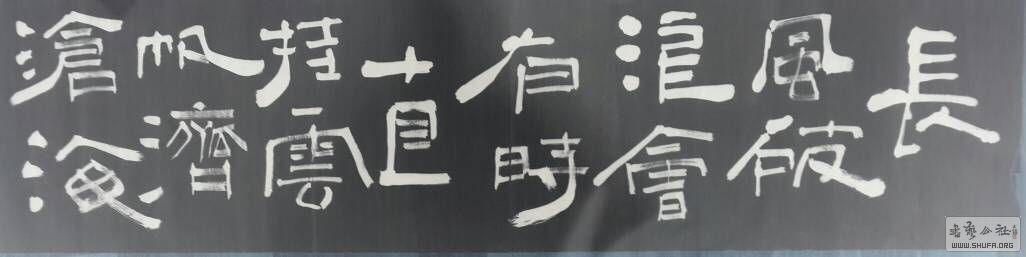 長
風破
浪會
有時
直
挂雲
帆濟
滄海
WWW.SHUFA.ORG